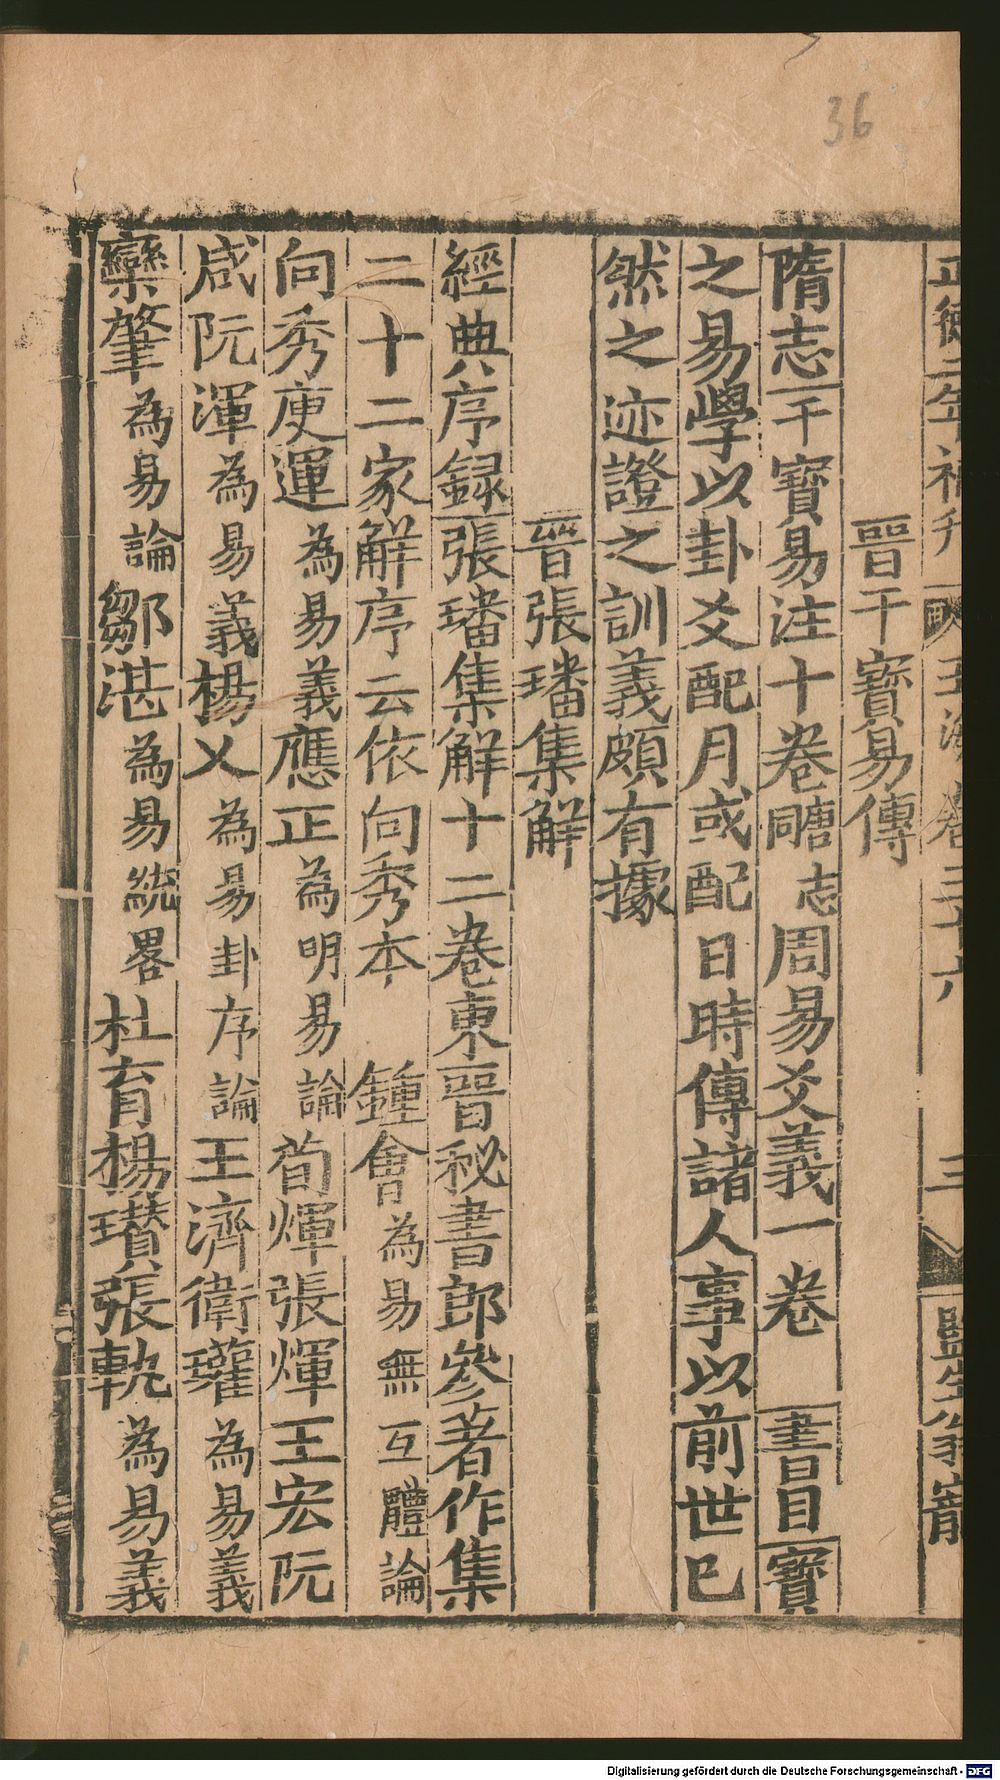 36
正德二年補刋 玉海卷三十六 三 監生翁寵
晉干寳易傳
隋志干寳易注十卷𦠆志周易爻義一卷 書目寳
之易學以卦爻配月或配日時傳諸人事以前世已
然之迹證之訓義頗有據
晉張璠集解
經典序録張璠集解十二卷東晉秘書郎參著作集
二十二家解序云依向秀本 鍾會為易無互體論
向秀庾運為易義應正為明易論荀煇張煇王宏阮
咸阮渾為易義楊乂為易卦序論王濟衛瓘為易義
欒肇為易論鄒湛為易統畧杜育楊瓉張軌為易義
Digitalisierung gefördert durch die Deutsche Forschungsgemeinschaft - DFG